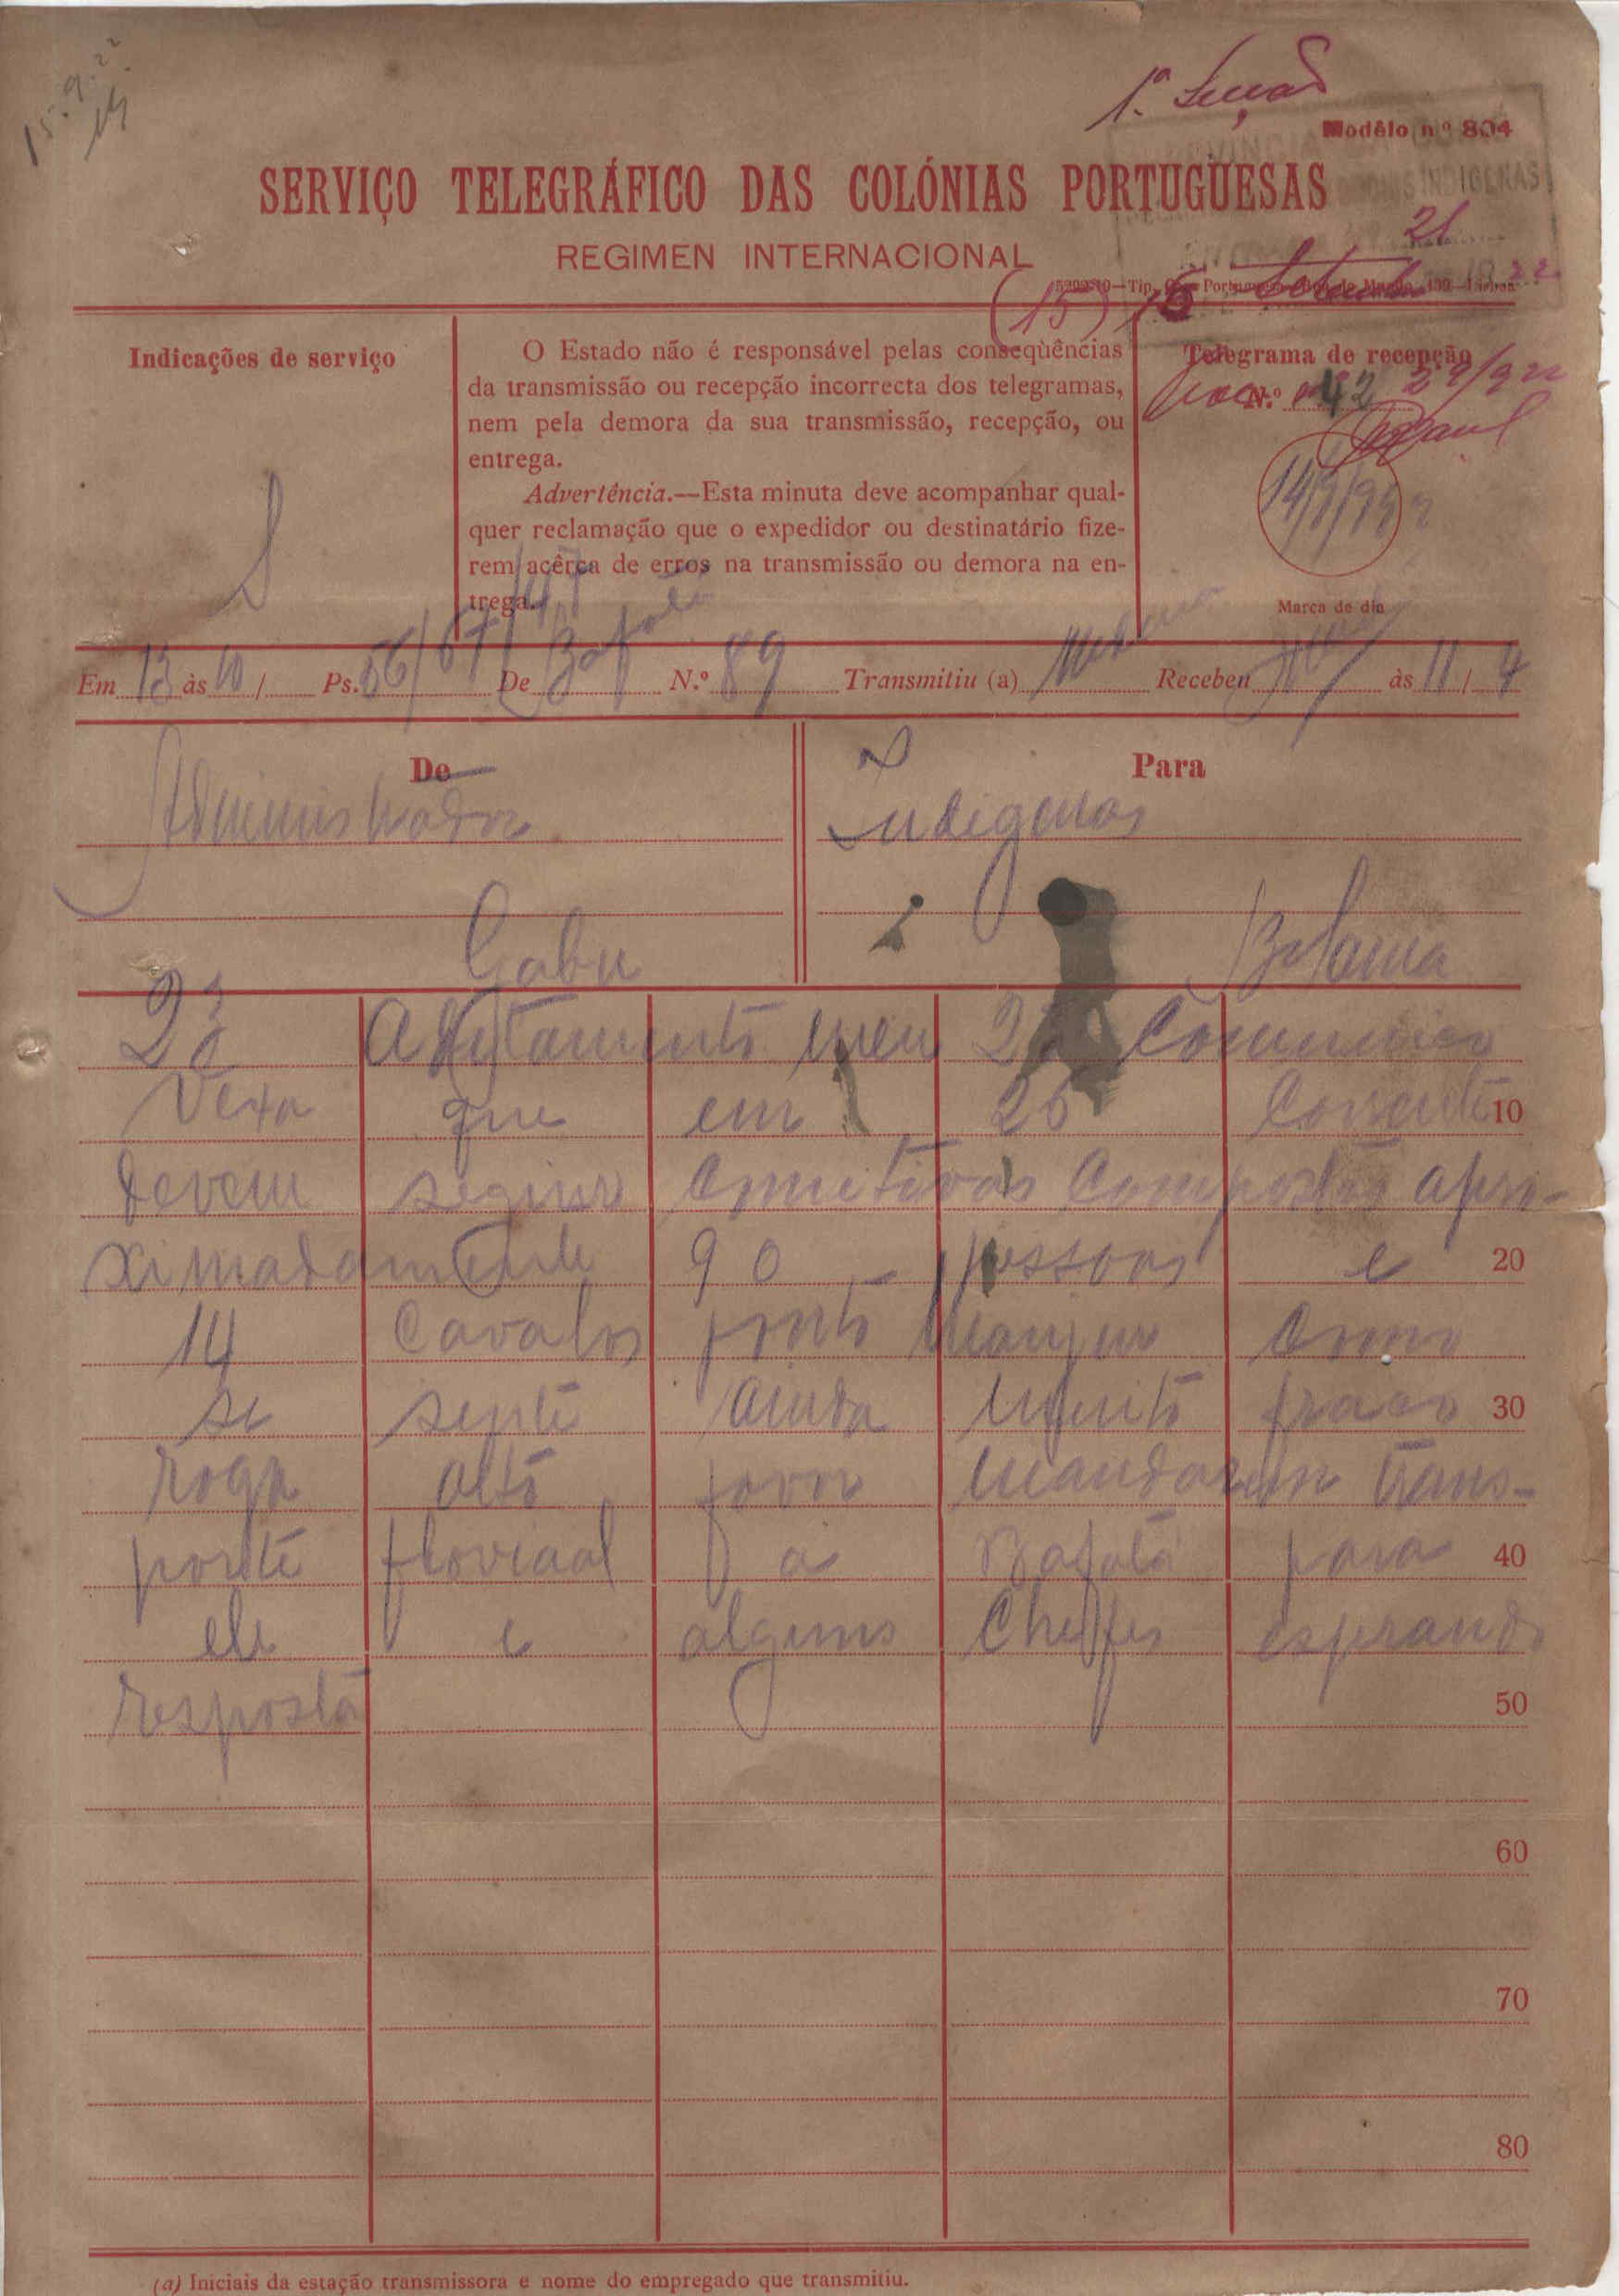 15.9.22
1.ª Secção
Modêlo n.º 804
PROVÍNCIA DA GUINÉ
INDIGENAS
SERVIÇO TELEGRÁFICO DAS COLÓNIAS PORTUGUESAS
REGIMEN INTERNACIONAL
21
(15) 16 Setembro 22
Indicações de serviço
O Estado não é responsável pelas conseqüências
da transmissão ou recepção incorrecta dos telegramas,
nem pela demora da sua transmissão, recepção, ou
entrega.
Advertência.—Esta minuta deve acompanhar qual-
quer reclamação que o expedidor ou destinatário fize-
rem acêrca de erros na transmissão ou demora na en-
trega.
Telegrama de recepção
N.º 42
Marca do dia
Em 13 às 10 / Ps. 56/64/47 De Bafatá N.º 89 Transmitiu (a) Recebeu às 11 / 4
De
Administrador
Gabu
Para
Indigenas
Bolama
2ª Aditamento meu 22 Comunico
Vexa que em 25 Corrente 10
devem seguir Comitivas Compostas apro-
ximadamente 90 - pessoas e 20
14 Cavalos ponto Monjur Como
se sente ainda muito fraco 30
roga alto favor mandarem trans-
porte floviaal a Bafatá para 40
ele e alguns Cheffes esperando
resposta 50
60
70
80
(a) Iniciais da estação transmissora e nome do empregado que transmitiu.